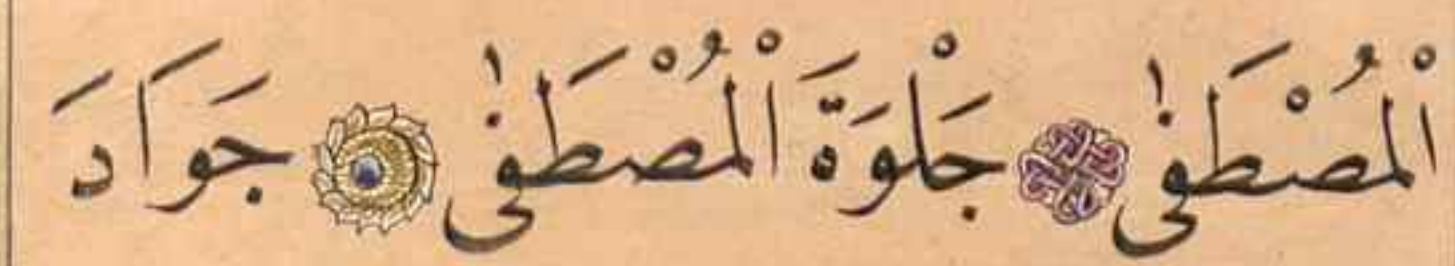 اْلمُصْطَفٰى جَلْوَةَ اْلمُصْطَفٰى جَوَادَ